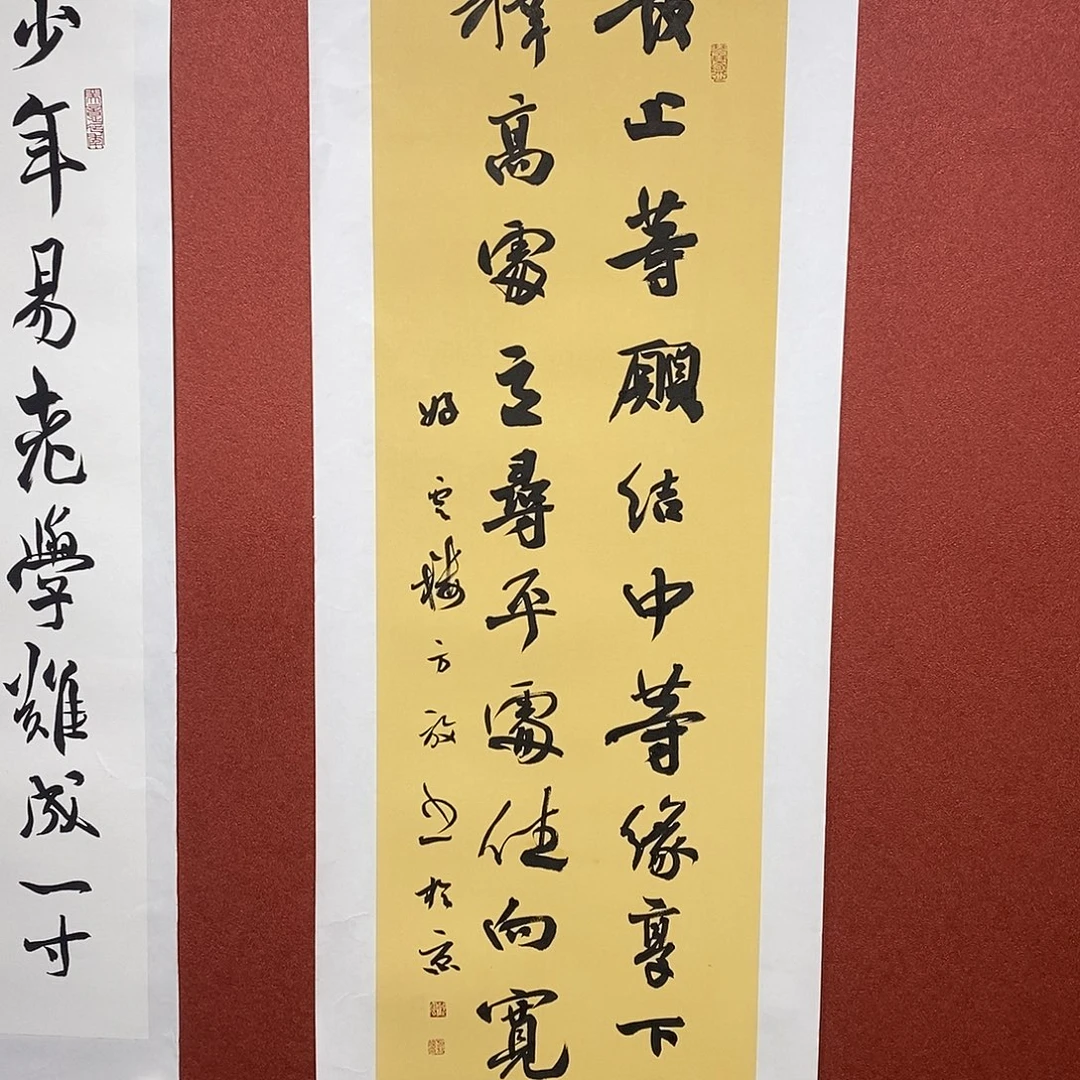 發上等願結中等緣享下
擇高處立尋平處住向寬
好雲樓方放書於京
少年易老學難成一寸